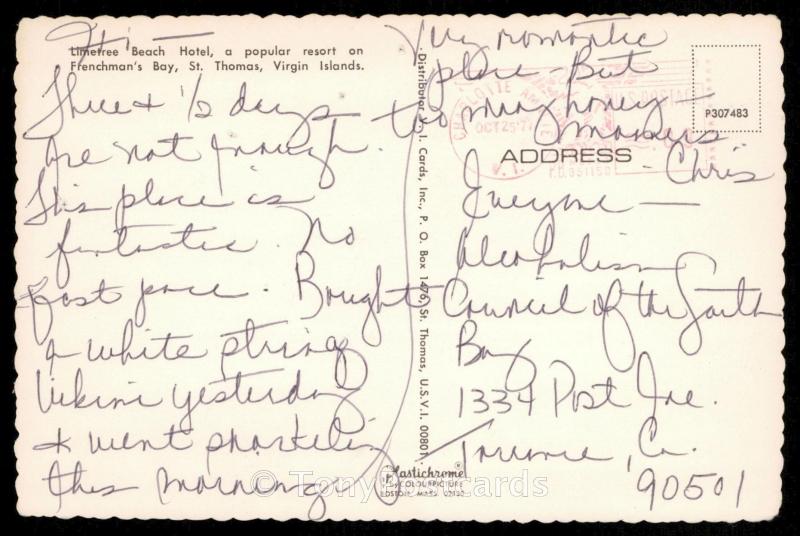 Hi —
Limetree Beach Hotel, a popular resort on
Frenchman's Bay, St. Thomas, Virgin Islands.
Three & 1/2 days
are not enough.
This place is
fantastic. No
fast pace. Bought
a white string
bikini yesterday
& went snorkeling
this morning
Very romantic
place - But
too many honey-
mooners
- Chris
Distributor V. I. Cards, Inc., P. O. Box 1476, St. Thomas, U.S.V.I. 00801.
Plastichrome
BY COLOURPICTURE
BOSTON, MASS. 02130
CHARLOTTE
OCT 25
V. I.
U.S. POSTAGE
P.B.
P307483
ADDRESS
Everyone —
Alcoholism
Council of the South
Bay
1334 Post Ave.
Torrance, Ca.
90501
© Tony postcards